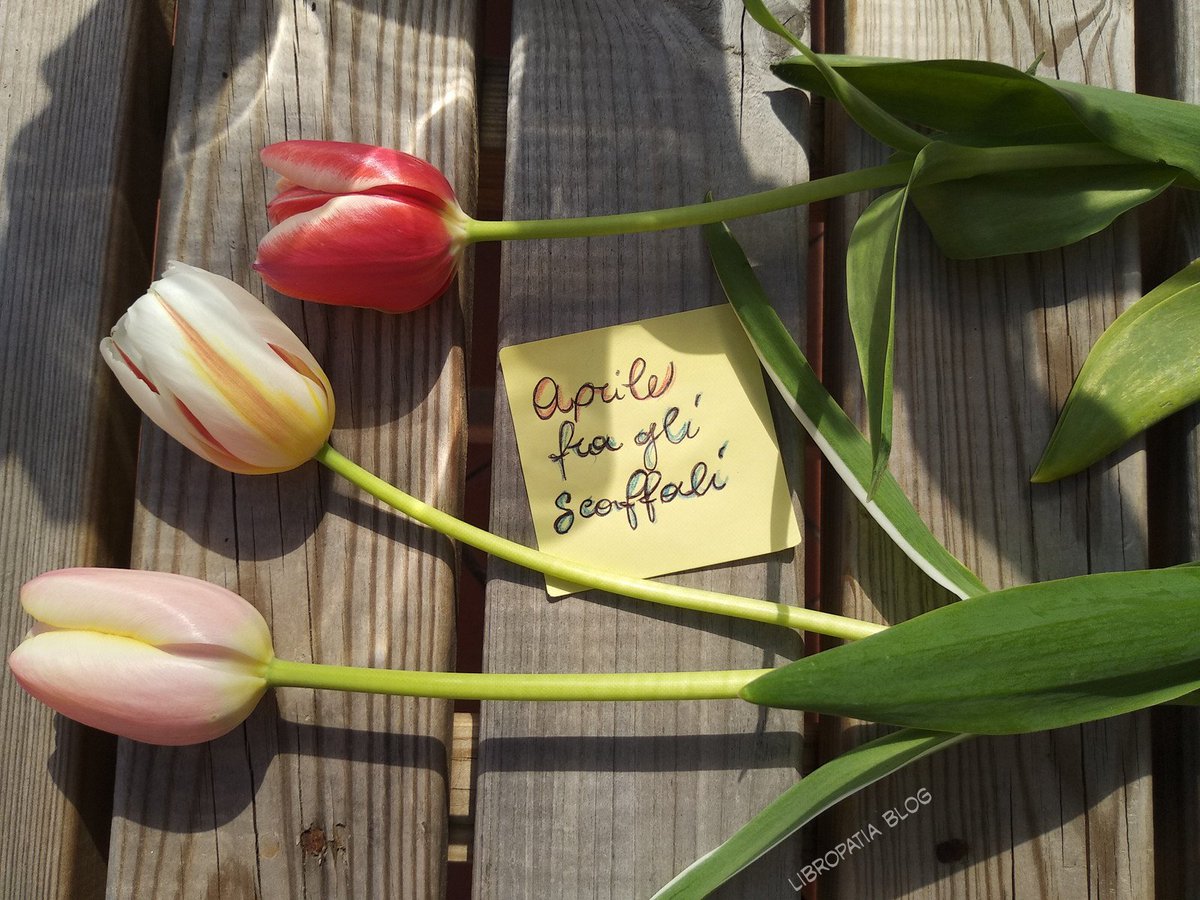 Aprile
fra gli
scaffali
LIBROPATIA BLOG